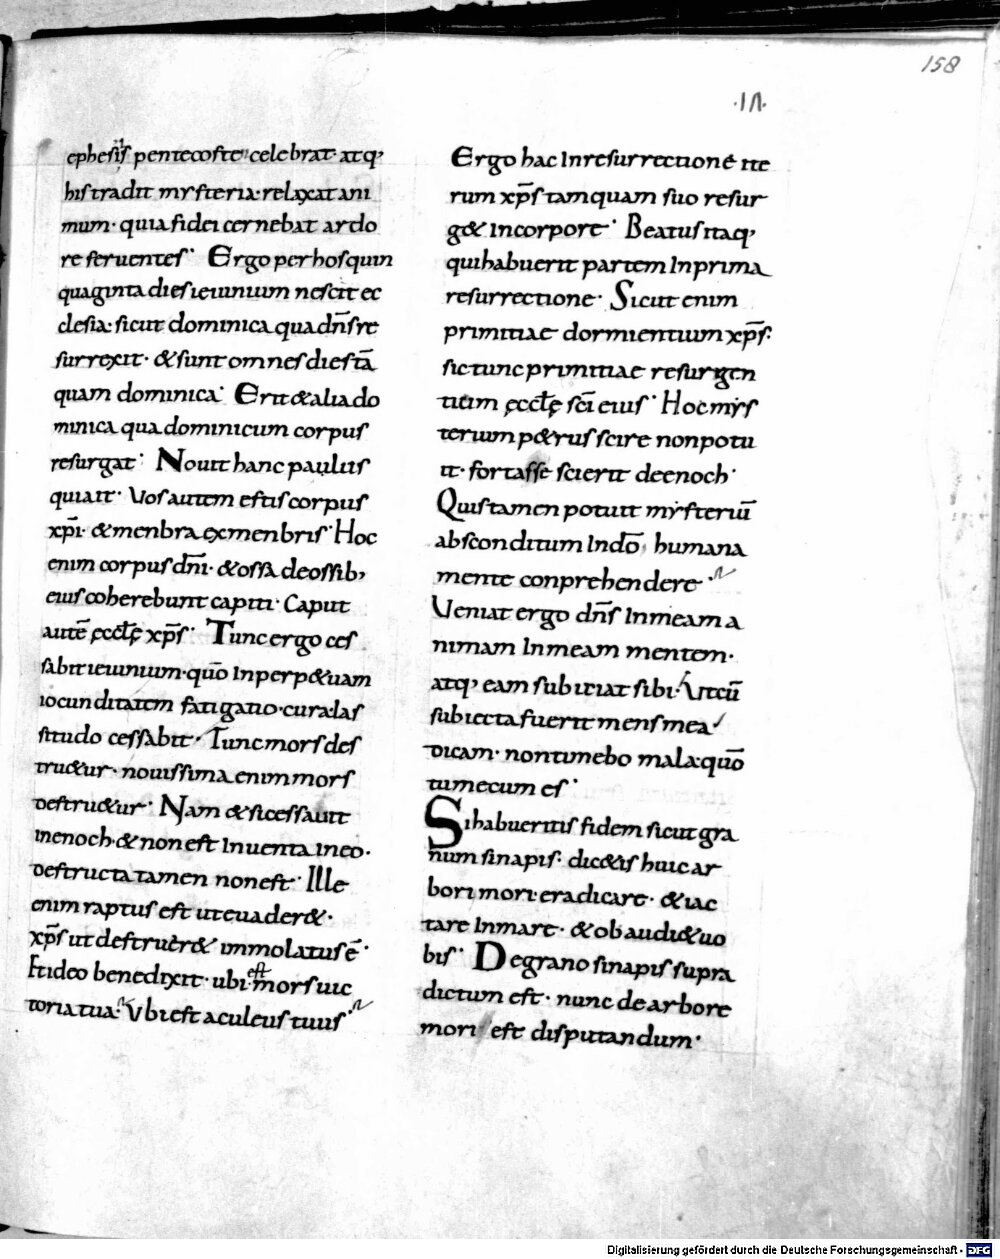 158
·III·
ephesiis pentecosten celebrat· atq;
his tradit mysteria· relaxat ani
mum· quia fidei cernebat ardo
re feruentes· Ergo per hos quin
quaginta dies ieiunium nescit ec
clesia· sicut dominica qua dn̄s re
surrexit· & sunt omnes dies tā
quam dominica· Erit & alia do
minica qua dominicum corpus
resurgat· Nouit hanc paulus
quia it· Vos autem estis corpus
xp̄i· & menbra ex menbris· Hoc
enim corpus dn̄i· & ossa de ossib;
eius coherebunt capiti· Caput
autē ęccl̄ę xp̄s· Tunc ergo ces
sabit ieiunium· quō in perp&uam
iocunditatem fatigatio· cura· las
situdo cessabit· Tunc mors des
tru&ur· nouissima enim mors
destru&ur· Nam & si cessauit
in enoch· & non est inuenta in eo·
destructa tamen non est· Ille
enim raptus est ut euader&·
xp̄s ut destruer& immolatus ē·
Et ideo benedixit· ubi est mors uic
toria tua· Vbi est aculeus tuus·
Ergo hac in resurrectione ite
rum xp̄s tamquam suo resur
g& in corpore· Beatus itaq;
qui habuerit partem in prima
resurrectione· Sicut enim
primitiae dormientium xp̄s·
sic tunc primitiae resurgen
tium ęccl̄ę sc̄i eius· Hoc mys
terium p&rus scire non potu
it· fortasse scierit de enoch·
Quis tamen potuit mysteriū
absconditum in dō; humana
mente conprehendere·
Veniat ergo dn̄s in meam a
nimam in meam mentem·
atq; eam subiciat sibi· Ut cū
subiecta fuerit mens mea
dicam· non timebo mala· quō
tu mecum es·
Si habueritis fidem sicut gra
num sinapis· dic&is huic ar
bori mori· eradicare· & iac
tare in mare· & obaudi& uo
bis· De grano sinapis supra
dictum est· nunc de arbore
mori est disputandum·
Digitalisierung gefördert durch die Deutsche Forschungsgemeinschaft - DFG